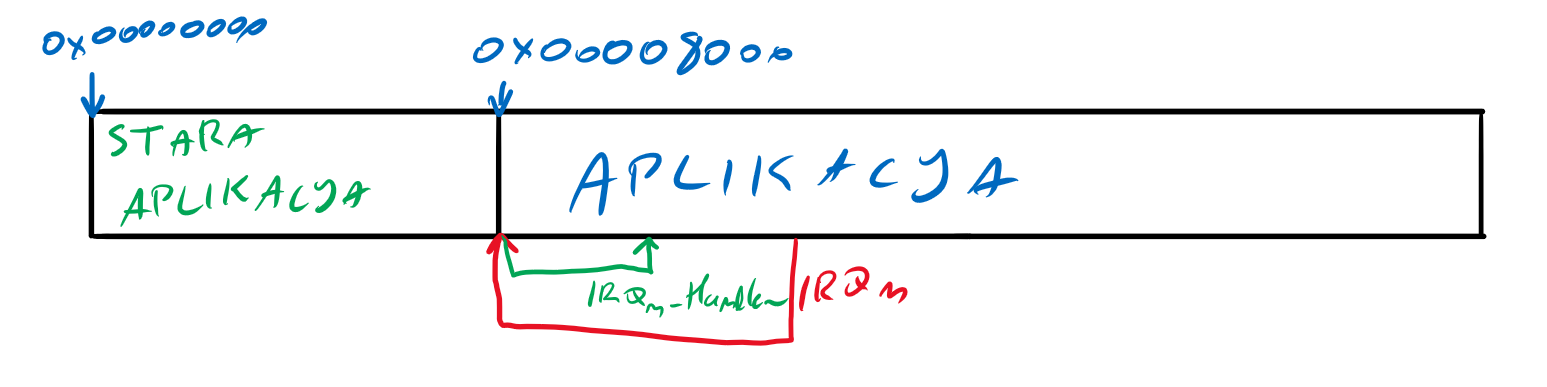 0x00000000
0x00008000
STARA
APLIKACYJA
APLIKACYJA
IRQn_Handler
IRQn